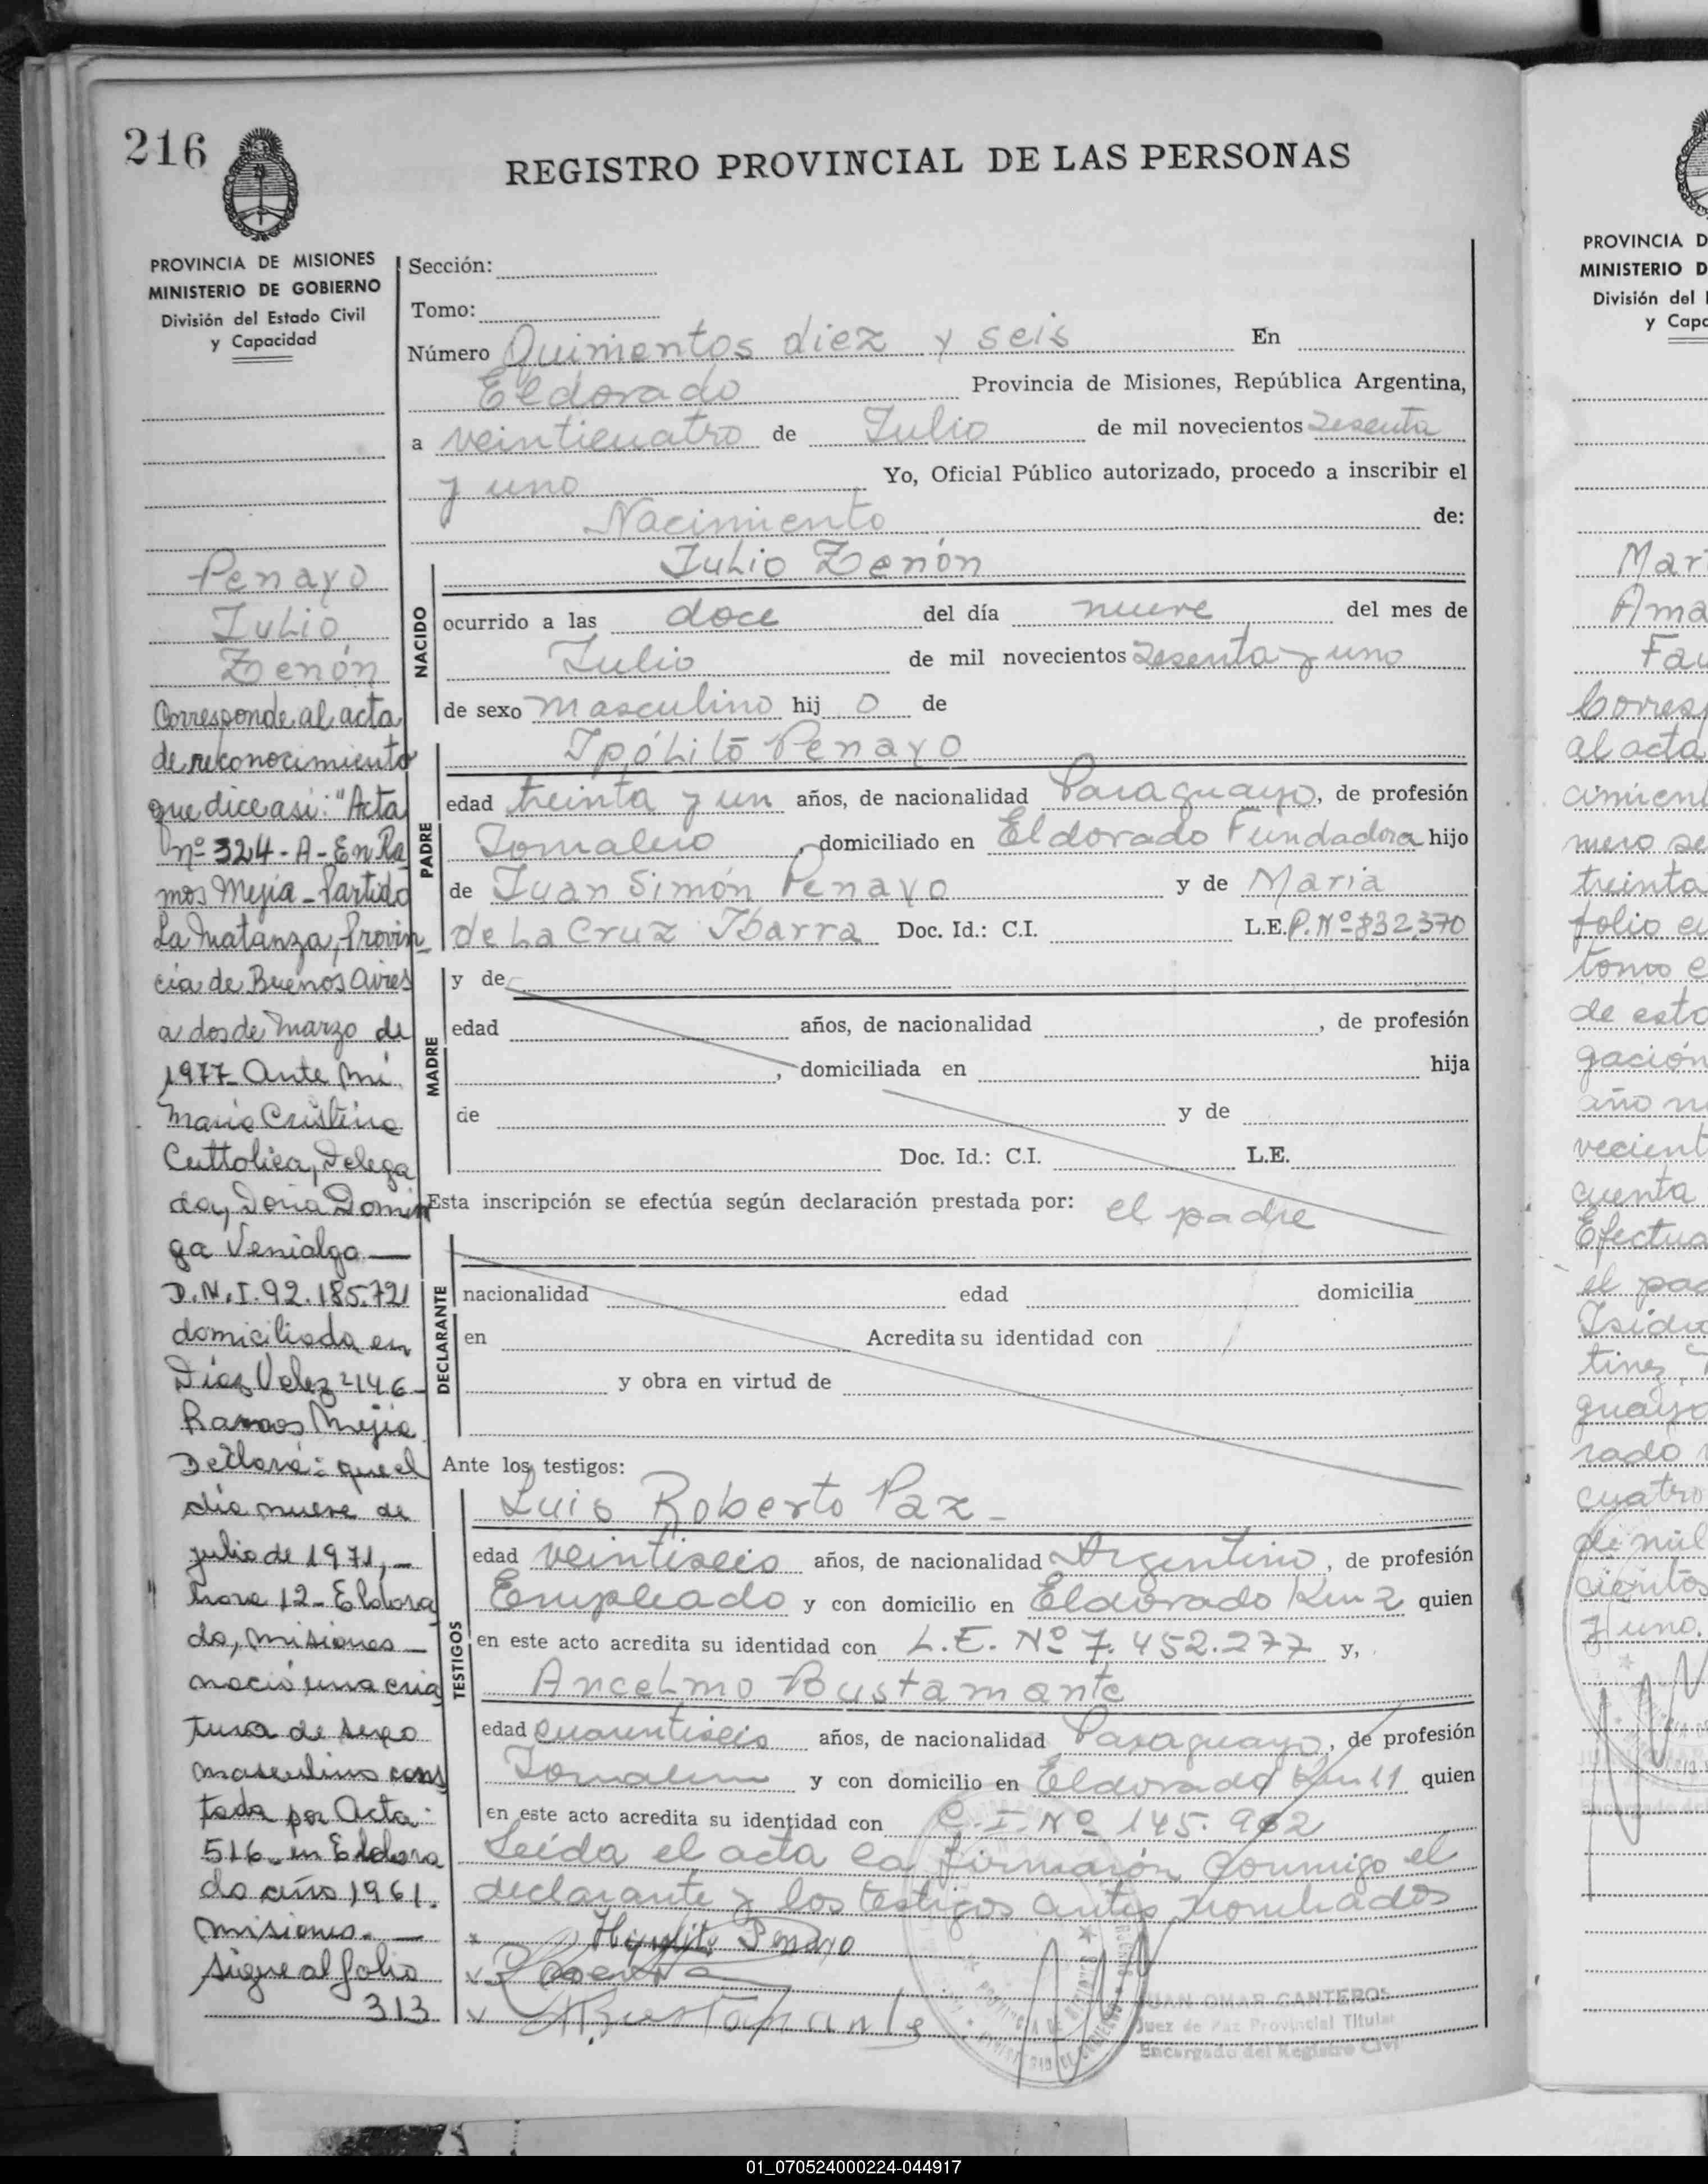 216
REGISTRO PROVINCIAL DE LAS PERSONAS
PROVINCIA DE MISIONES
MINISTERIO DE GOBIERNO
División del Estado Civil
y Capacidad
Penayo
Julio
Zenón
Corresponde al acta
de reconocimiento
que dice asi: "Acta
nº 324-A-En Ra
mos Mejía-Partido
La Matanza, Provin
cia de Buenos Aires
a dos de Marzo de
1977 Ante Mi
Maria Cristina
Cuttolica, Delega
da, Doña Domin
ga Venialgo —
D.N.I. 92.185.721
domiciliada en
Diaz Velez 2146-
Ramos Mejia
Declara: que el
día nueve de
julio de 1971,-
hora 12-Eldora
do, Misiones-
nació una cria
tura de sexo
masculino cons
tada por Acta
516 en Eldora
do año 1961.
Misiones. —
Sigue al folio
313
Sección:
Tomo:
Número Quinientos diez y seis En
Eldorado Provincia de Misiones, República Argentina,
a veinticuatro de Julio de mil novecientos sesenta
y uno Yo, Oficial Público autorizado, procedo a inscribir el
Nacimiento de:
NACIDO
Julio Zenón
ocurrido a las doce del día nueve del mes de
Julio de mil novecientos sesenta y uno
de sexo masculino hij o de
PADRE
Ipólito Penayo
edad treinta y un años, de nacionalidad Paraguayo, de profesión
Jornalero, domiciliado en Eldorado Fundadora hijo
de Juan Simón Penayo y de Maria
de La Cruz Ibarra Doc. Id.: C.I. L.E. P.Nº 832,370
MADRE
y de
edad años, de nacionalidad , de profesión
, domiciliada en hija
de y de
Doc. Id.: C.I. L.E.
Esta inscripción se efectúa según declaración prestada por: el padre
DECLARANTE
nacionalidad edad domicilia
en Acredita su identidad con
y obra en virtud de
Ante los testigos:
TESTIGOS
Luis Roberto Paz-
edad veintiseis años, de nacionalidad Argentino, de profesión
Empleado y con domicilio en Eldorado Km 2 quien
en este acto acredita su identidad con L.E. Nº 7.452.277 y,
Ancelmo Bustamante
edad cuarentiseis años, de nacionalidad Paraguayo, de profesión
Jornalero y con domicilio en Eldorado Km 11 quien
en este acto acredita su identidad con C.I. Nº 145.962
Leída el acta la firmarón conmigo el
declarante y los testigos antes nombrados
Hipolito Penayo
Bustamante
JUAN OMAR CANTEROS
Juez de Paz Provincial Titular
Encargado del Registro Civil
PROVINCIA D
MINISTERIO D
División del
y Capa
Mar
Ama
Fau
Corres
al acta
cimient
mero se
treinta
folio
tomo e
de esta
gación
año n
vecient
cuenta
Efectua
el pad
Isidro
tinez,
guayo
rado
cuatro
de mil
cientos
y uno.
01_070524000224-044917